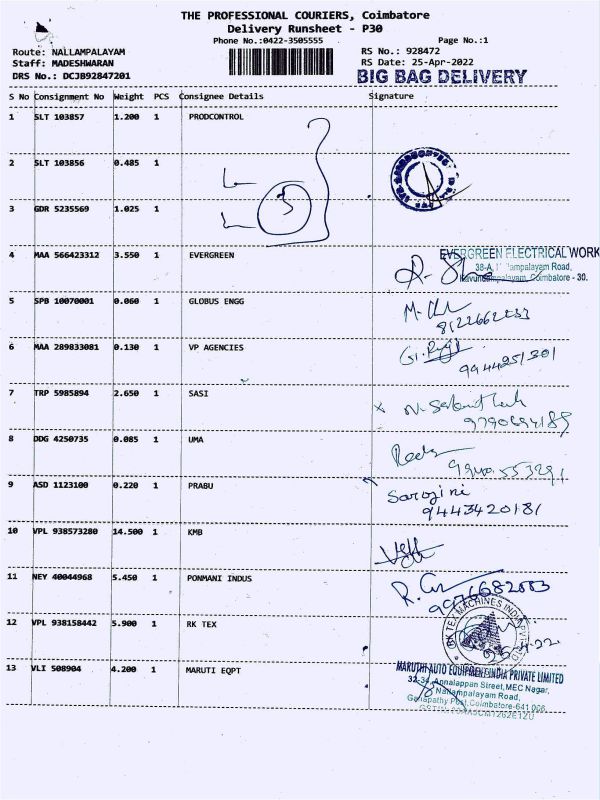 THE PROFESSIONAL COURIERS, Coimbatore
Delivery Runsheet - P30
Phone No.:0422-3505555 Page No.:1
Route: NALLAMPALAYAM RS No.: 928472
Staff: MADESHWARAN RS Date: 25-Apr-2022
DRS No.: DCJB92847201 BIG BAG DELIVERY
S No Consignment No Weight PCS Consignee Details Signature
1 SLT 103857 1.200 1 PRODCONTROL
2 SLT 103856 0.485 1
3 GDR 5235569 1.025 1
3
4 MAA 566423312 3.550 1 EVERGREEN EVERGREEN ELECTRICAL WORK
38-A, Nallampalayam Road,
Coimbatore - 30.
5 SPB 10070001 0.060 1 GLOBUS ENGG
6 MAA 289833081 0.130 1 VP AGENCIES
9944251301
7 TRP 5985894 2.650 1 SASI
9790694189
8 DDG 4250735 0.085 1 UMA
9 ASD 1123100 0.220 1 PRABU Sarojini
9443420181
10 VPL 938573280 14.500 1 KMB
11 NEY 40044968 5.450 1 PONMANI INDUS
12 VPL 938158442 5.900 1 RK TEX RK TEX MACHINES INDIA PVT LTD
13 VLI 508904 4.200 1 MARUTI EQPT MARUTHI AUTO EQUIPMENT INDIA PRIVATE LIMITED
32-34, Annalappan Street, MEC Nagar,
Nallampalayam Road,
Ganapathy Post, Coimbatore-641 006.